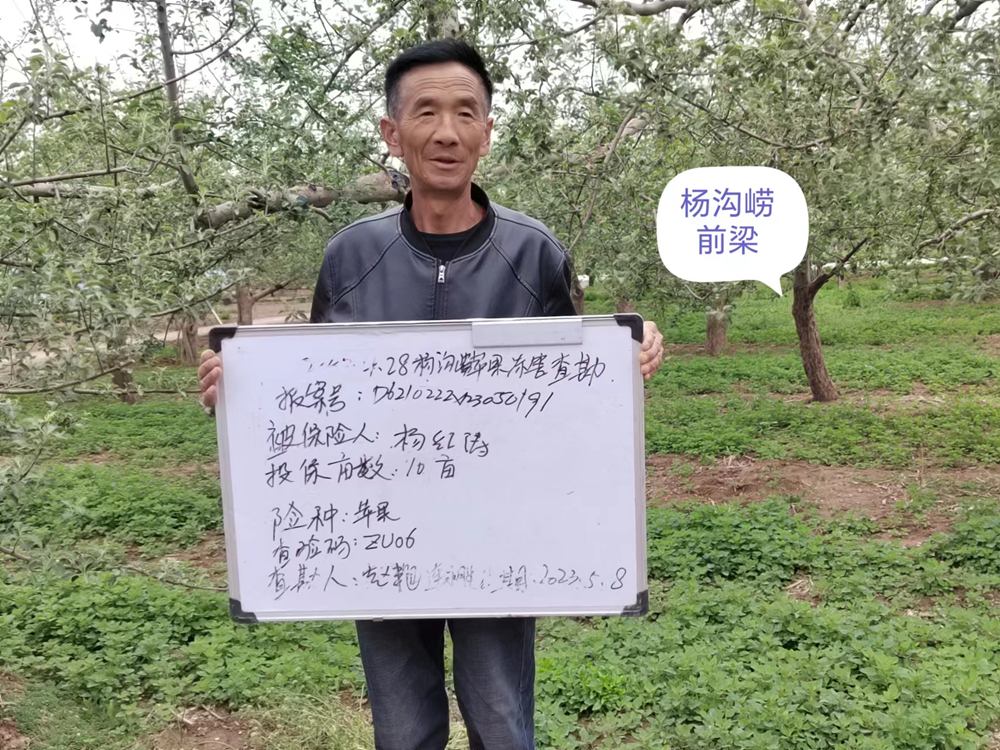 杨沟崂
前梁
28杨沟崂苹果冻害查勘
报案号:D6210222023050191
被保险人:杨红涛
投保亩数:10亩
险种:苹果
查验码:ZU06
查勘人: 2023.5.8